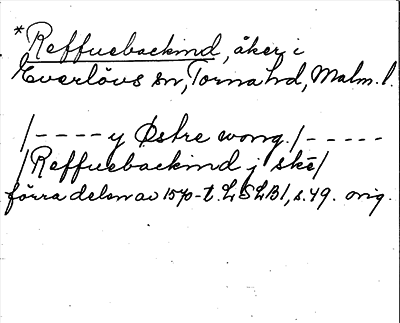 *Reffuebackind, åker i
Everlövs sn, Torna hd, Malm. l.
/---- y Østre wong. /-----
/Reffuebackind j skē/
förra delen av 1570-t. LSLB1, s. 49. orig.